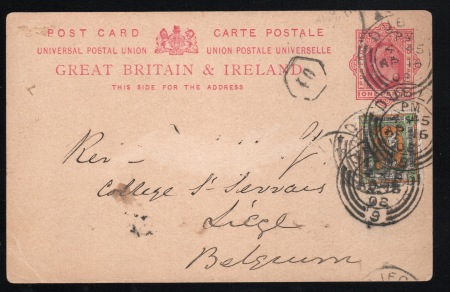 POST CARD CARTE POSTALE
UNIVERSAL POSTAL UNION UNION POSTALE UNIVERSELLE
GREAT BRITAIN & IRELAND
THIS SIDE FOR THE ADDRESS
College St Servais
Liège
Belgium